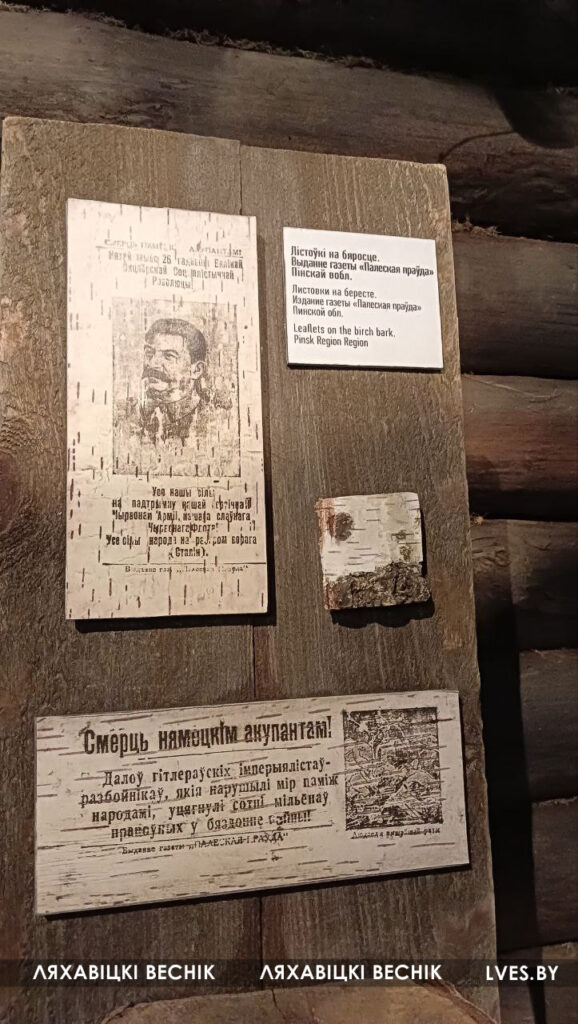 СМЕРЦЬ НЯМЕЦКІМ АКУПАНТАМ!
26 гадавіны Вялікай
Кастрычніцкай Соц
Рэволюцыі
Усе нашы сілы
на падтрымку нашай
Чырвонай Арміі, нашага слаўнага
Усе сілы народа на разгром ворага
(Сталін).
Выданне газ. „Палеская праўда"
Лістоўкі на бяросце.
Выданне газеты «Палеская праўда»
Пінскай вобл.
Листовки на бересте.
Издание газеты «Палеская праўда»
Пинской обл.
Leaflets on the birch bark.
Pinsk Region Region
Смерць нямецкім акупантам!
Далоў гітлераўскіх імперыялістаў-
разбойнікаў, якія нарушылі мір паміж
народамі, уцягнулі сотні мільёнаў
працоўных у бяздонне вайны!!
Выданне газеты „ПАЛЕСКАЯ ПРАЎДА"
ЛЯХАВІЦКІ ВЕСНІК ЛЯХАВІЦКІ ВЕСНІК LVES.BY